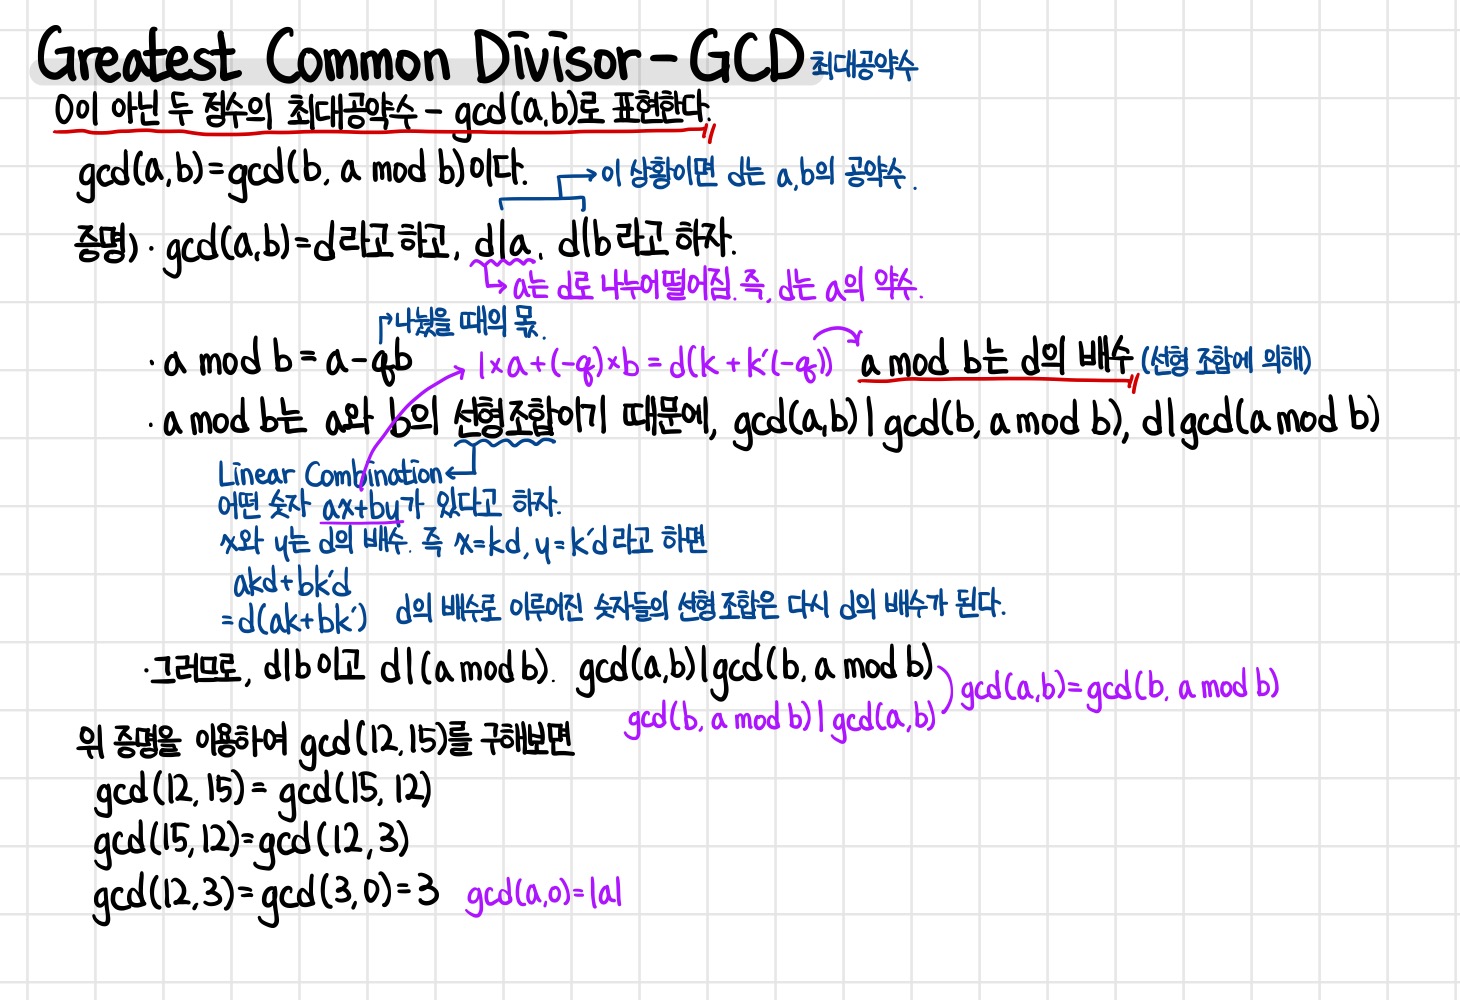 Greatest Common Divisor - GCD 최대공약수
0이 아닌 두 정수의 최대공약수 - gcd(a,b)로 표현한다.
gcd(a,b)=gcd(b, a mod b)이다.
이 상황이면 d는 a,b의 공약수.
증명) · gcd(a,b)=d라고 하고, d|a, d|b라고 하자.
a는 d로 나누어떨어짐. 즉, d는 a의 약수.
나눴을 때의 몫.
· a mod b = a-qb
1×a+(-q)×b = d(k+k'(-q)) a mod b는 d의 배수 (선형 조합에 의해)
· a mod b는 a와 b의 선형조합이기 때문에, gcd(a,b)|gcd(b, a mod b), d|gcd(a mod b)
Linear Combination
어떤 숫자 ax+by가 있다고 하자.
x와 y는 d의 배수. 즉 x=kd, y=k'd라고 하면
akd+bk'd
=d(ak+bk') d의 배수로 이루어진 숫자들의 선형조합은 다시 d의 배수가 된다.
· 그러므로, d|b이고 d|(a mod b). gcd(a,b)|gcd(b, a mod b)
gcd(b, a mod b)|gcd(a,b)
gcd(a,b)=gcd(b, a mod b)
위 증명을 이용하여 gcd(12,15)를 구해보면
gcd(12,15)= gcd(15,12)
gcd(15,12)=gcd(12,3)
gcd(12,3)=gcd(3,0)=3 gcd(a,0)=|a|